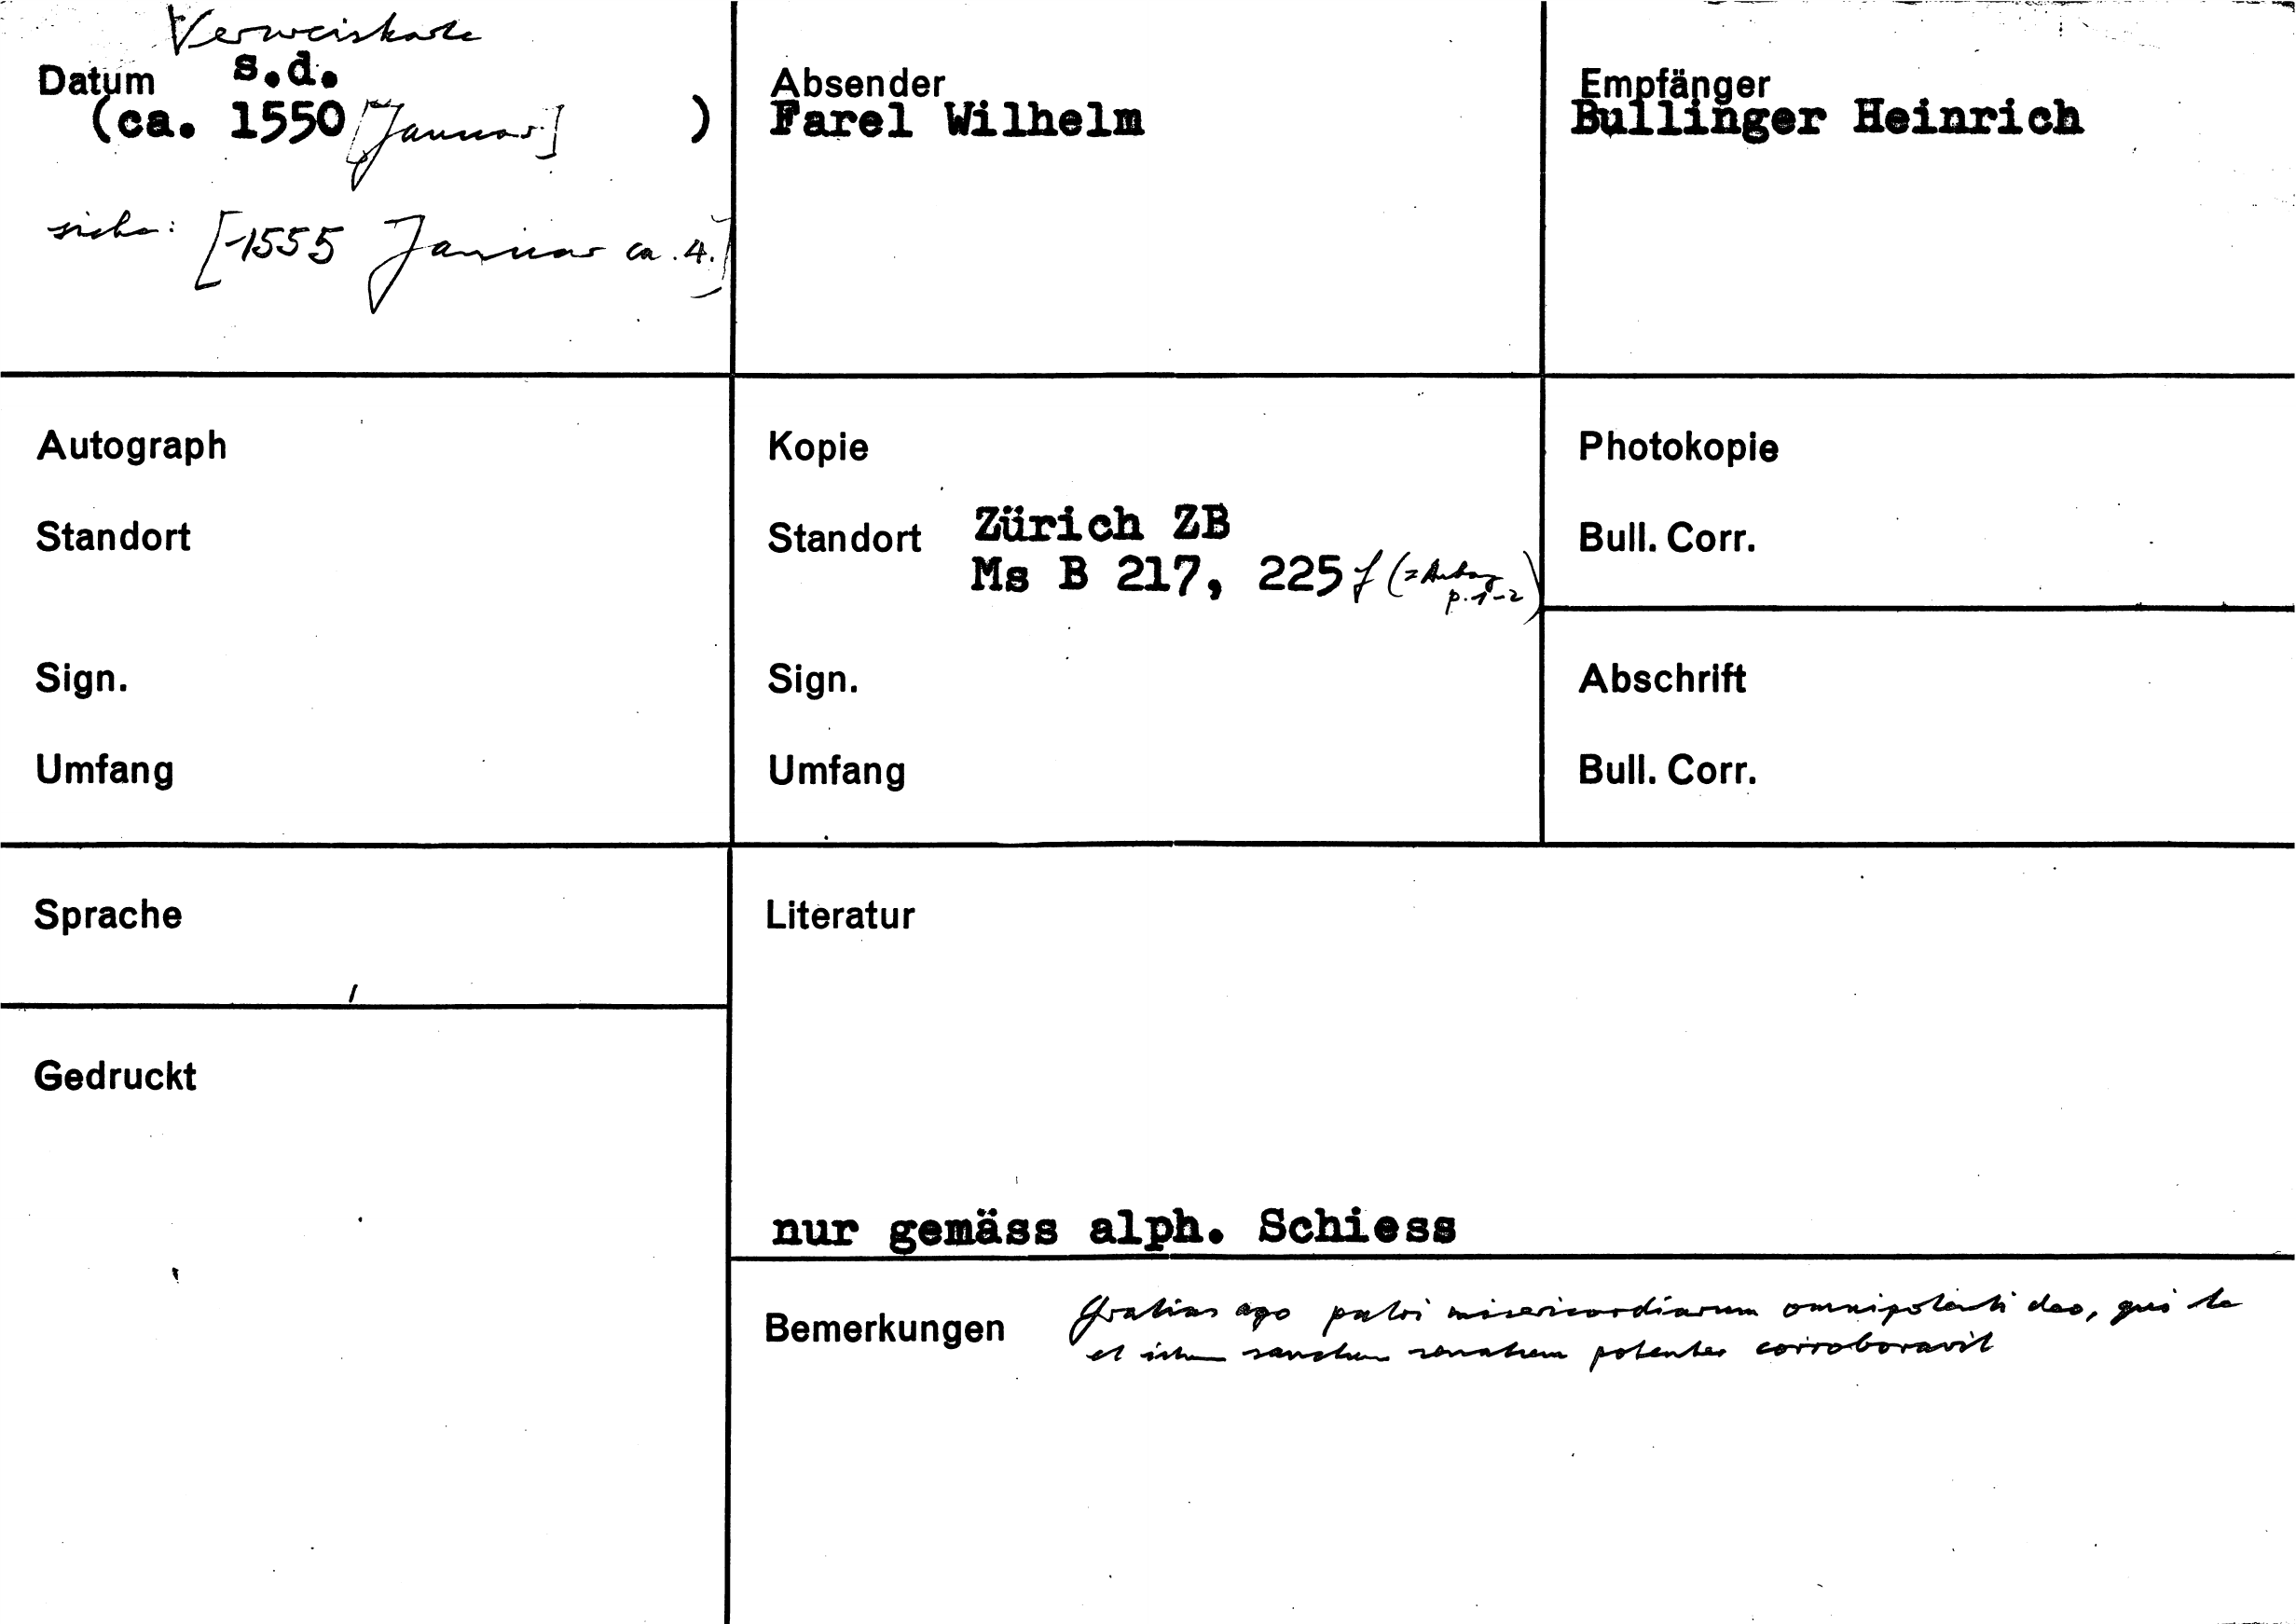 Verweiskarte
Datum s.d.
(ca. 1550 [Januar] )
siehe: [1555 Januar ca. 4.]
Absender
Farel Wilhelm
Empfänger
Bullinger Heinrich
Autograph
Standort
Sign.
Umfang
Kopie
Standort Zürich ZB
Ms B 217, 225 f (= Autog
p. 1-2)
Sign.
Umfang
Photokopie
Bull. Corr.
Abschrift
Bull. Corr.
Sprache
Gedruckt
Literatur
nur gemäss alph. Schiess
Bemerkungen Gratias ago patri misericordiarum omnipotenti deo, qui te
et istum sanctum senatum potenter corroboravit